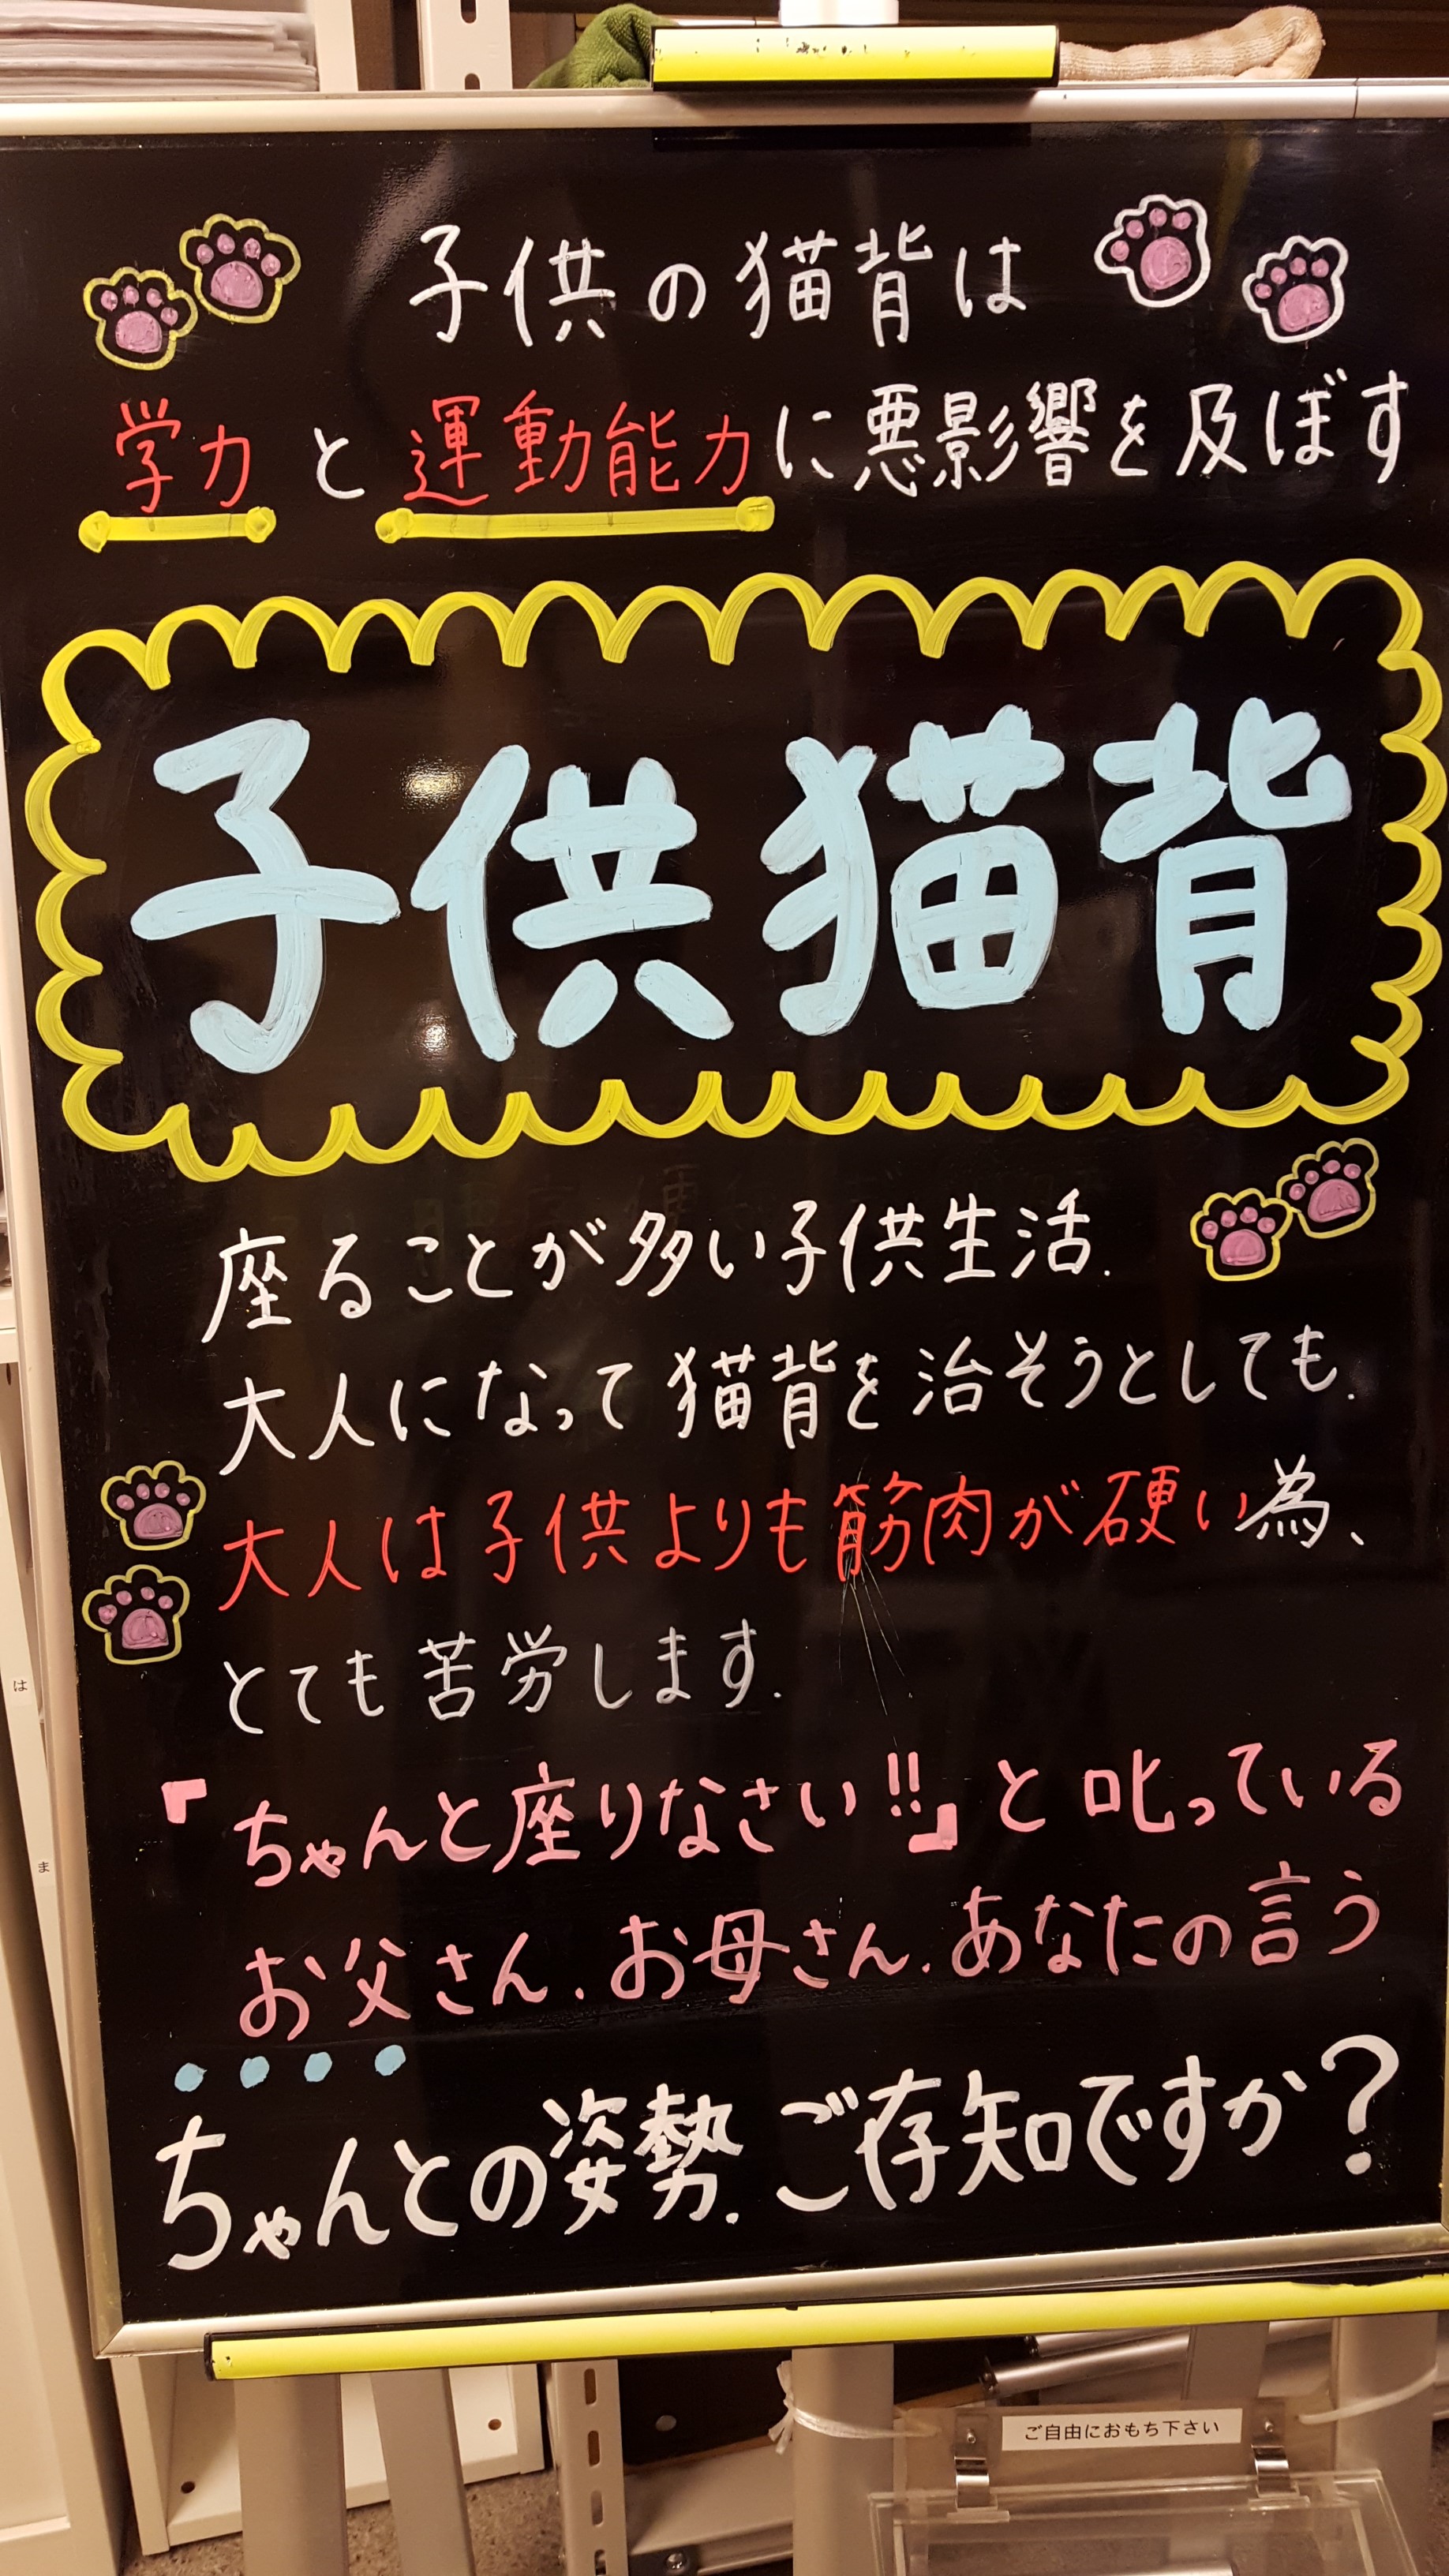 子供の猫背は
学力と運動能力に悪影響を及ぼす
子供猫背
座ることが多い子供生活.
大人になって猫背を治そうとしても.
大人は子供よりも筋肉が硬い為、
とても苦労します.
「ちゃんと座りなさい!!」と叱っている
お父さん.お母さん.あなたの言う
ちゃんとの姿勢.ご存知ですか?
ご自由におもち下さい
は
ま